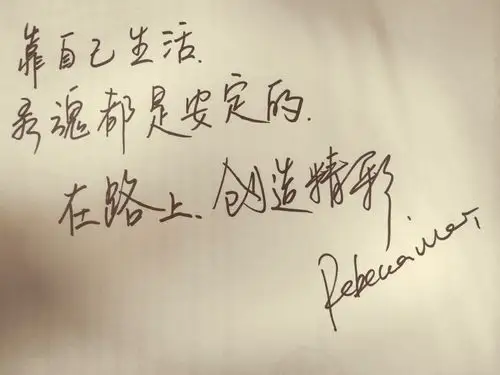 靠自己生活.
灵魂都是安定的.
在路上、创造精彩
Rebecca